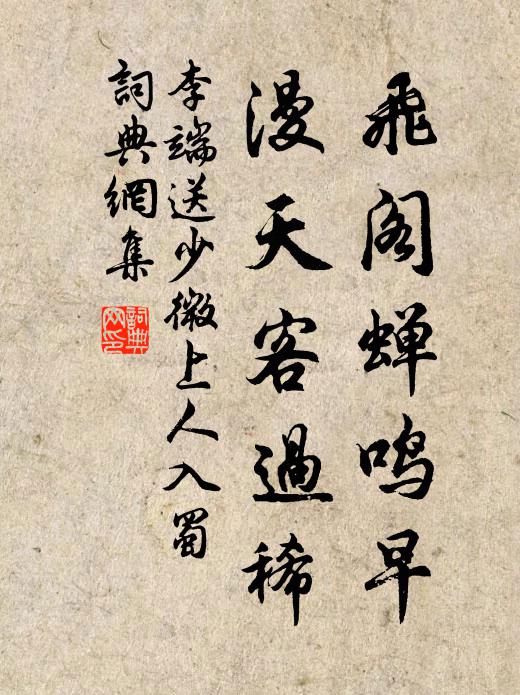 飛阁蝉鸣早
漫天客過稀
李端送少微上人入蜀
詞典網集
詞典
网印